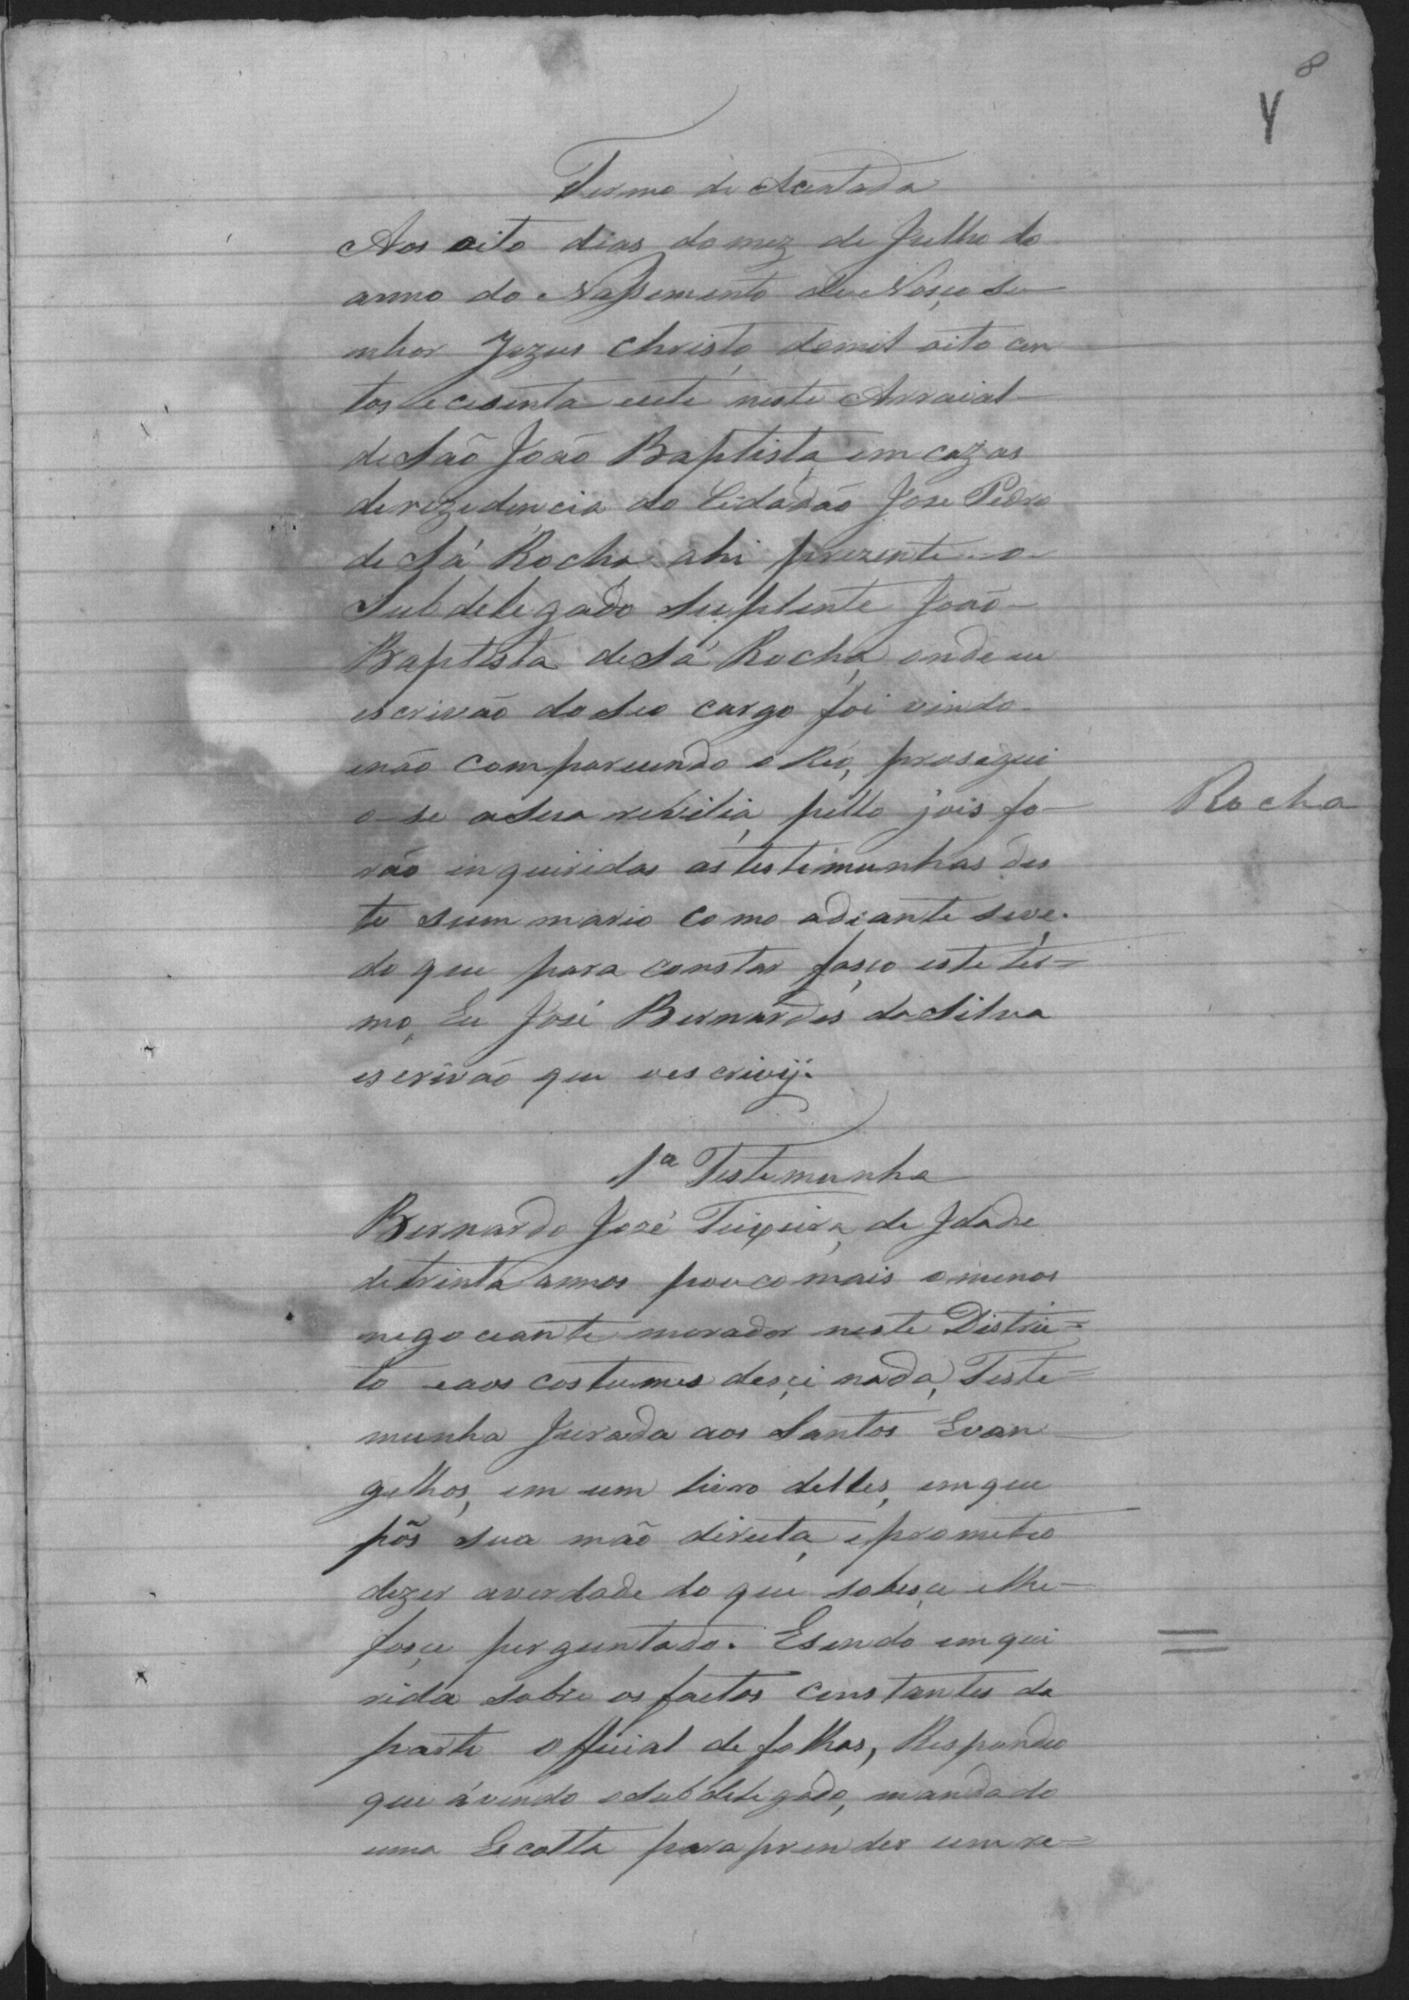 8
Y
Termo de Acentada
Aos oito dias do mez de Julho do
anno do Nassimento de Noço Se
nhor Jezus Christo, de mil oito cen
tos e cesenta e cete neste Arraial
de São João Baptista, em cazas
de rezedencia do Cidadão José Pedro
de Sá Rocha ahi prezente o
Subdelegado Suplente João
Baptista de Sá Rocha, onde eu
escrivão do seo cargo foi vindo
e não comparcendo o Réo, prosegui
o-se a sua revilia, pello jois fo-
rão inqueridas as testimunhas des
te summario como adiante se ve.
do que para constar faço este ter-
mo, Eu José Bernardes da Silva
escrivão que o escrivij.
Rocha
1ª Testemunha
Bernardo José Teixeira, de Idade
de trinta annos pouco mais o menos
negociante morador neste Distric-
to e aos costumes deçe nada, Teste-
munha Jurada aos Santos Evan
gelhos, em um livro delles, em que
pôs sua mão direita, e prometeo
dezer a verdade do que sobeçe e lhe
foçe perguntado. E sendo enqui
rida sobre os factos constantes da
parte official de folhas, Respondeo
que ávendo o Subdelegado, mandado
uma Escolta para prender um re=